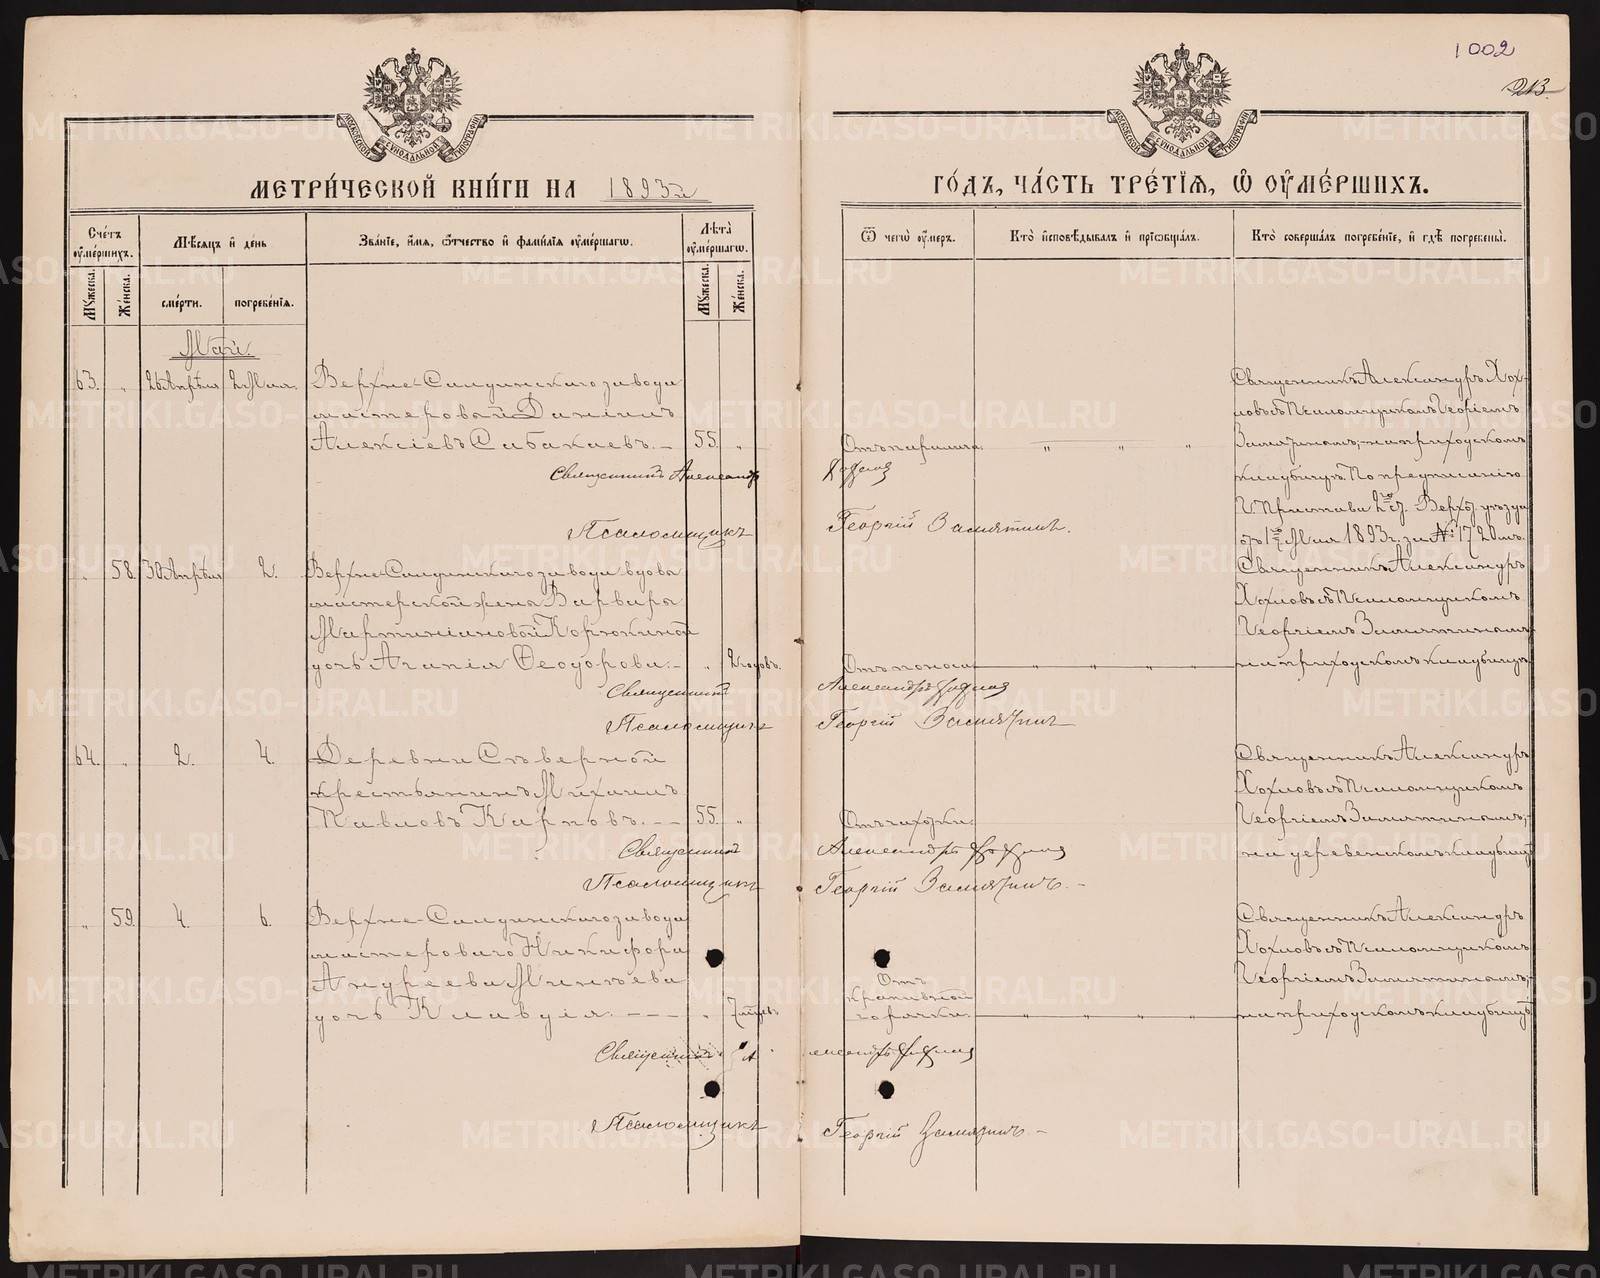 1002
213
МЕТРИ́ЧЕСКОЙ КНИ́ГИ НА 1893й
ГО́ДЪ, ЧА́СТЬ ТРЕ́ТІѦ, Ѡ ОУМЕ́РШИХЪ.
Сче́тъ оуме́ршихъ.
Мꙋжеска.
Же́нска.
Мѣсяцъ и де́нь
сме́рти.
погребе́нія.
Зва́ніе, и́мя, ѻ҆́тчество и фами́лія оуме́ршагѡ.
Лѣта̀ оуме́ршагѡ.
Мꙋжеска.
Же́нска.
Ѿ чегѡ̀ оу́меръ.
Кто̀ исповѣ́дывалъ и прїѡбща́лъ.
Кто̀ соверша́лъ погребе́ніе, и гдѣ̀ погребены̀.
Май.
63. „ 26 Апрѣля 2 Мая.
Верхне-Салдинскаго завода
мастеровой Даніилъ
Алексіевъ Сабакаевъ. — 55. „
Священникъ Александръ
Псаломщикъ Георгій Замятинъ.
Священникъ Александръ Хох-
ловъ съ Псаломщикомъ Георгіемъ
Замятинымъ, на приходскомъ
кладбищѣ. По предписанію
Г. Пристава 2го ст. Верхот. уѣзда
отъ 1го Мая 1893 г. за № 1720мъ.
„ 58. 30 Апрѣля 2.
Верхне-Салдинскаго завода вдовы
мастерской жены Варвары
Мартиніановой Корюкиной
дочь Агапія Ѳеодорова. — „ 2 годовъ.
Отъ поноса
Священникъ Александръ
Псаломщикъ Георгій Замятинъ
Священникъ Александръ
Хохловъ съ Псаломщикомъ
Георгіемъ Замятинымъ
на приходскомъ кладбищѣ
64. „ 2. 4.
Деревни Сѣверной
крестьянинъ Михаилъ
Павловъ Карповъ. — 55. „
Отъ чахотки.
Священникъ Александръ
Псаломщикъ Георгій Замятинъ. —
Священникъ Александръ
Хохловъ съ Псаломщикомъ
Георгіемъ Замятинымъ,
на деревенскомъ кладбищѣ
„ 59. 4. 6.
Верхне-Салдинскаго завода
мастероваго Никифора
Андреева Минѣева
дочь Клавдія. — — — „ 7 мѣсяцъ
Отъ
крапивной
горячки.
Священникъ Александръ
Псаломщикъ Георгій Замятинъ. —
Священникъ Александръ
Хохловъ съ Псаломщикомъ
Георгіемъ Замятинымъ,
на приходскомъ кладбищѣ
METRIKI.GASO-URAL.RU